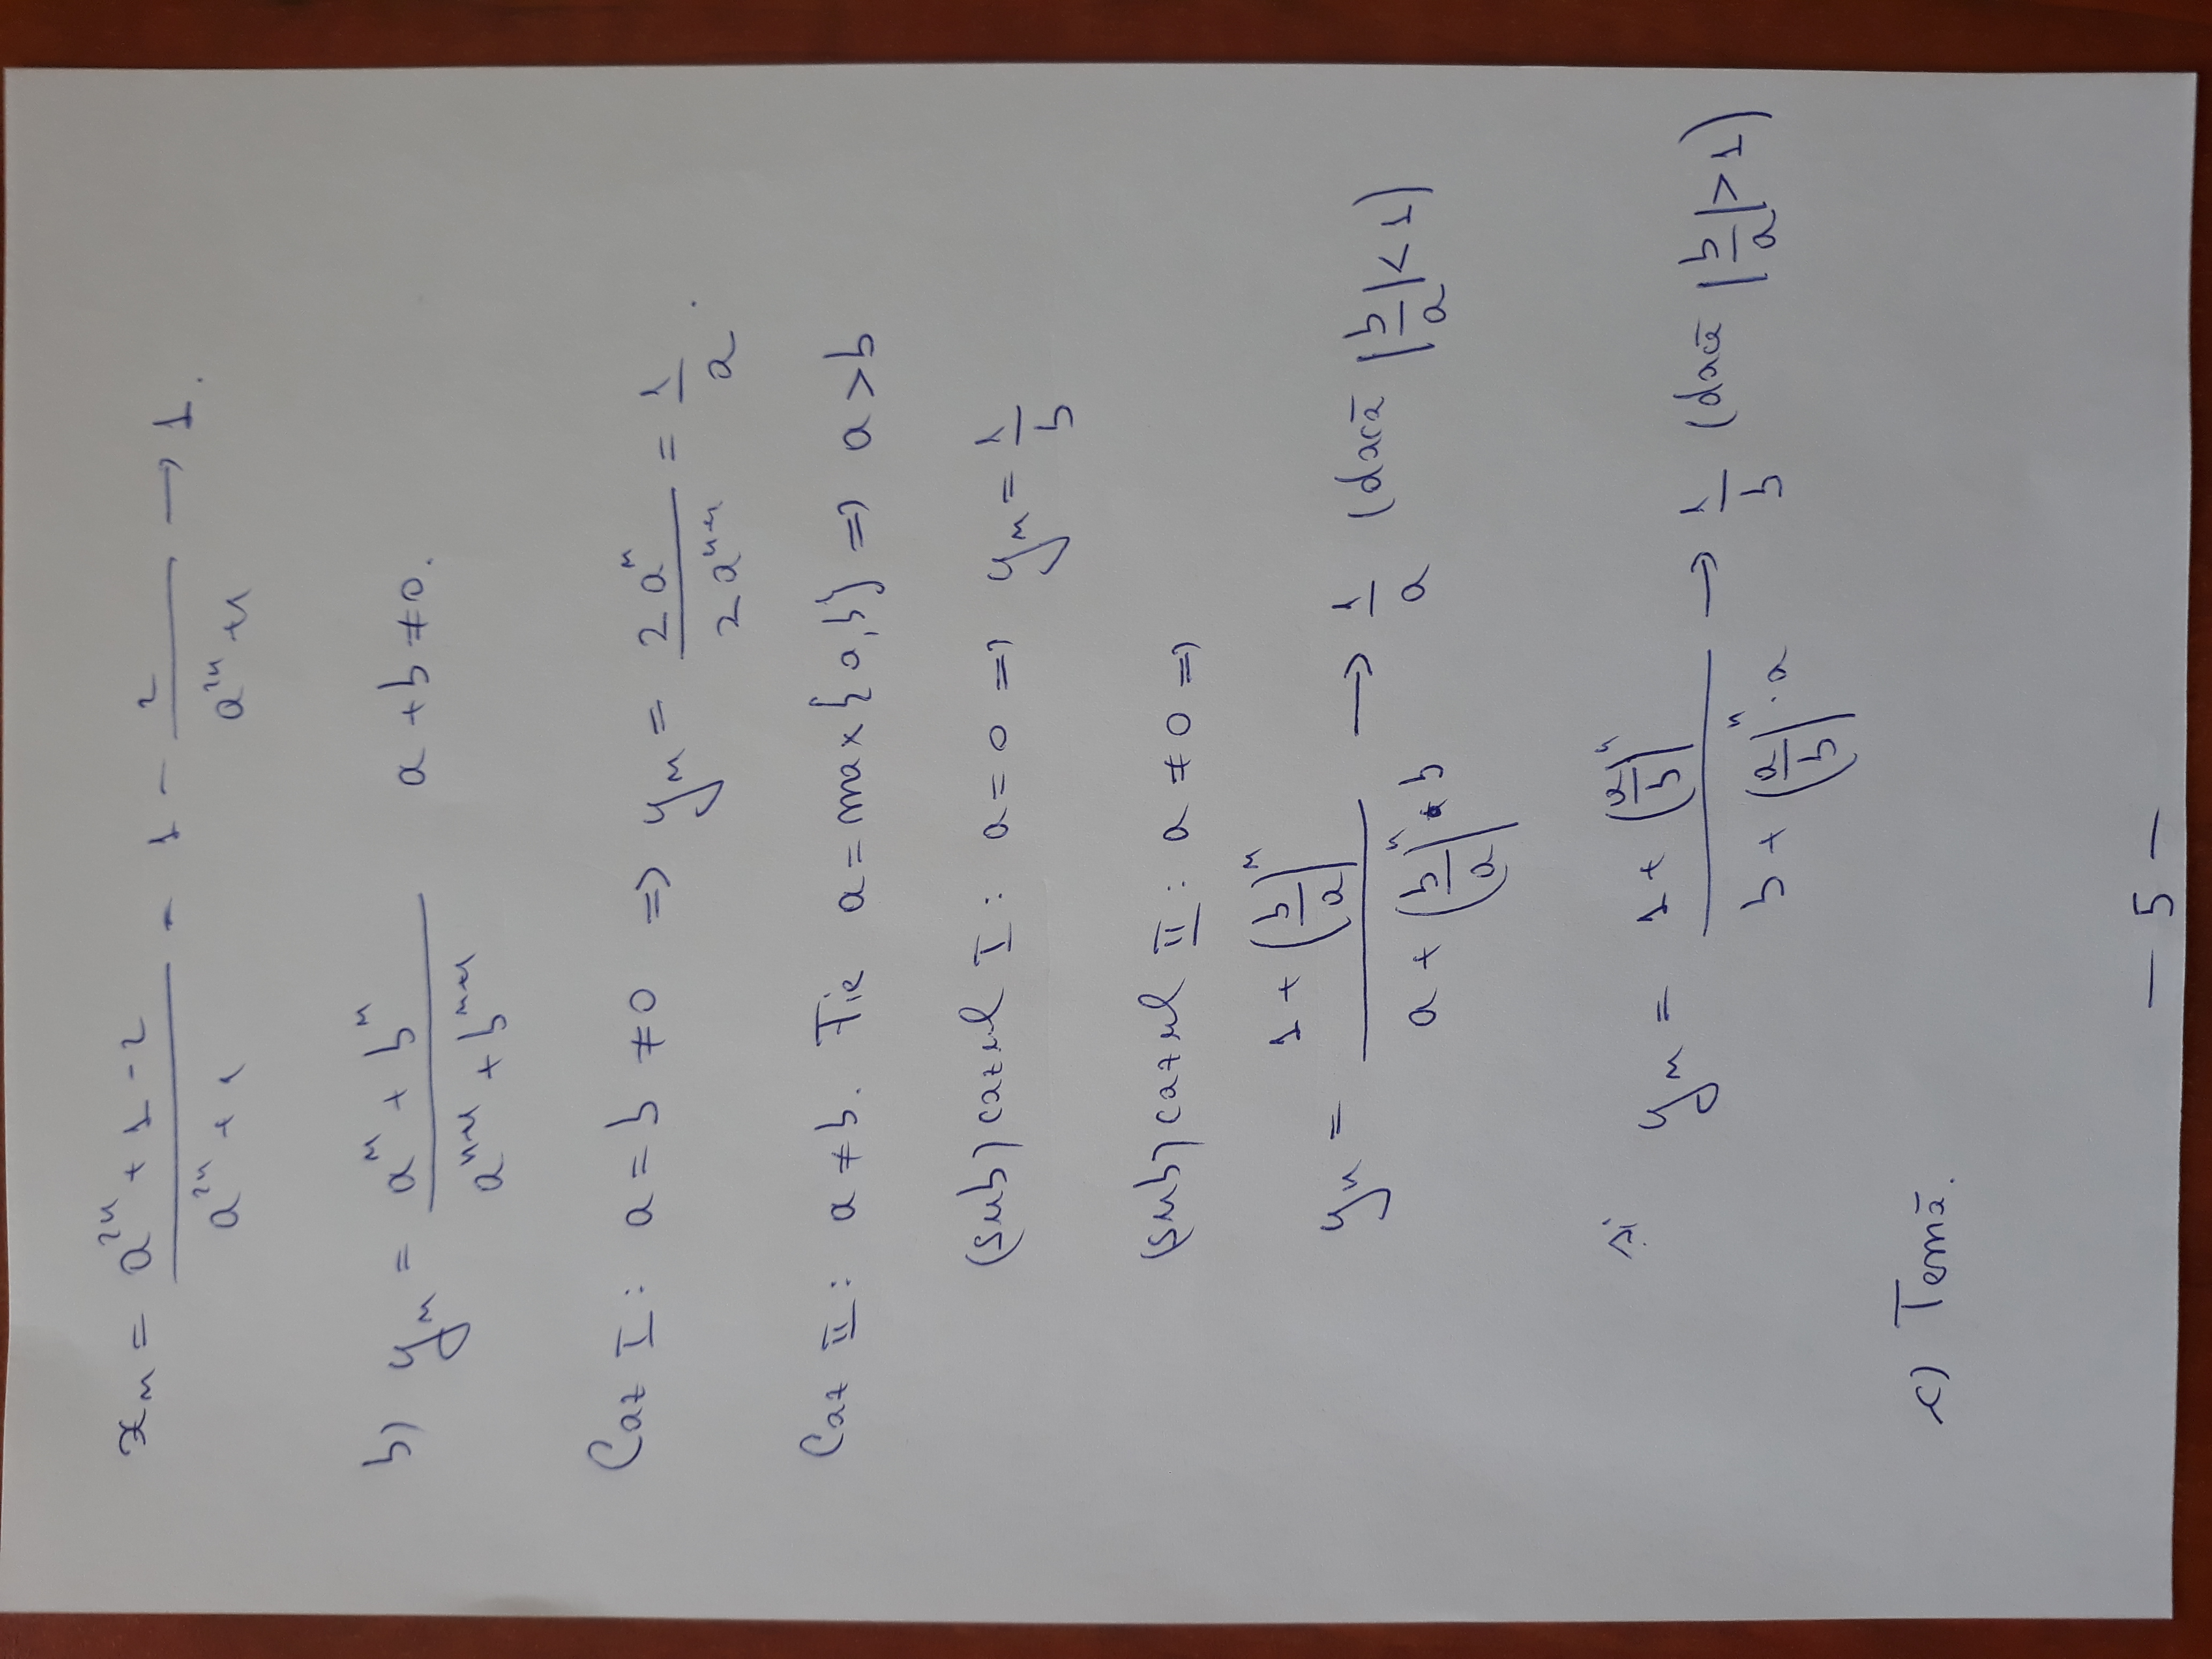 xₙ = (a²ⁿ + 1 - 2)/(a²ⁿ + 1) = 1 - 2/(a²ⁿ + 1) → 1.
b) yₙ = (aⁿ + bⁿ)/(aⁿ⁺¹ + bⁿ⁺¹) a + b ≠ 0.
Caz I: a = b ≠ 0 => yₙ = 2aⁿ/2aⁿ⁺¹ = 1/a.
Caz II: a ≠ b. Fie a = max{a,b} => a > b
(sub)cazul I: a = 0 => yₙ = 1/b
(sub)cazul II: a ≠ 0 =>
yₙ = (1 + (b/a)ⁿ)/(a + (b/a)ⁿ · b) → 1/a (dacă |b/a| < 1)
și yₙ = (1 + (a/b)ⁿ)/(b + (a/b)ⁿ · a) → 1/b (dacă |b/a| > 1)
c) Temă.
— 5 —